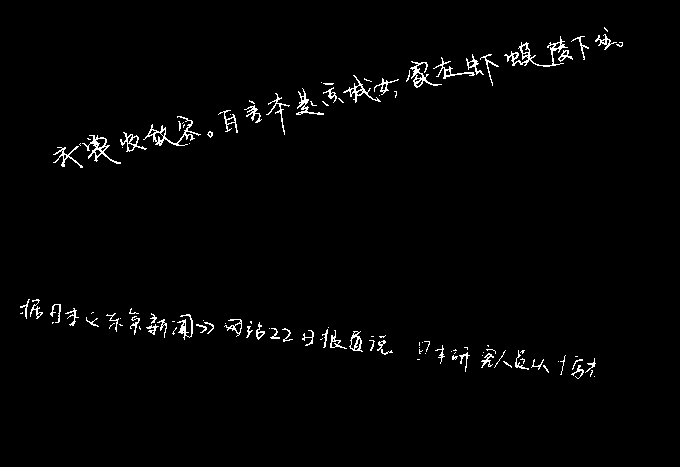 衣裳收敛容。自言本是京城女,家在虾蟆陵下住。
据日本《东京新闻》网站22日报道说 日本研究人员从十字